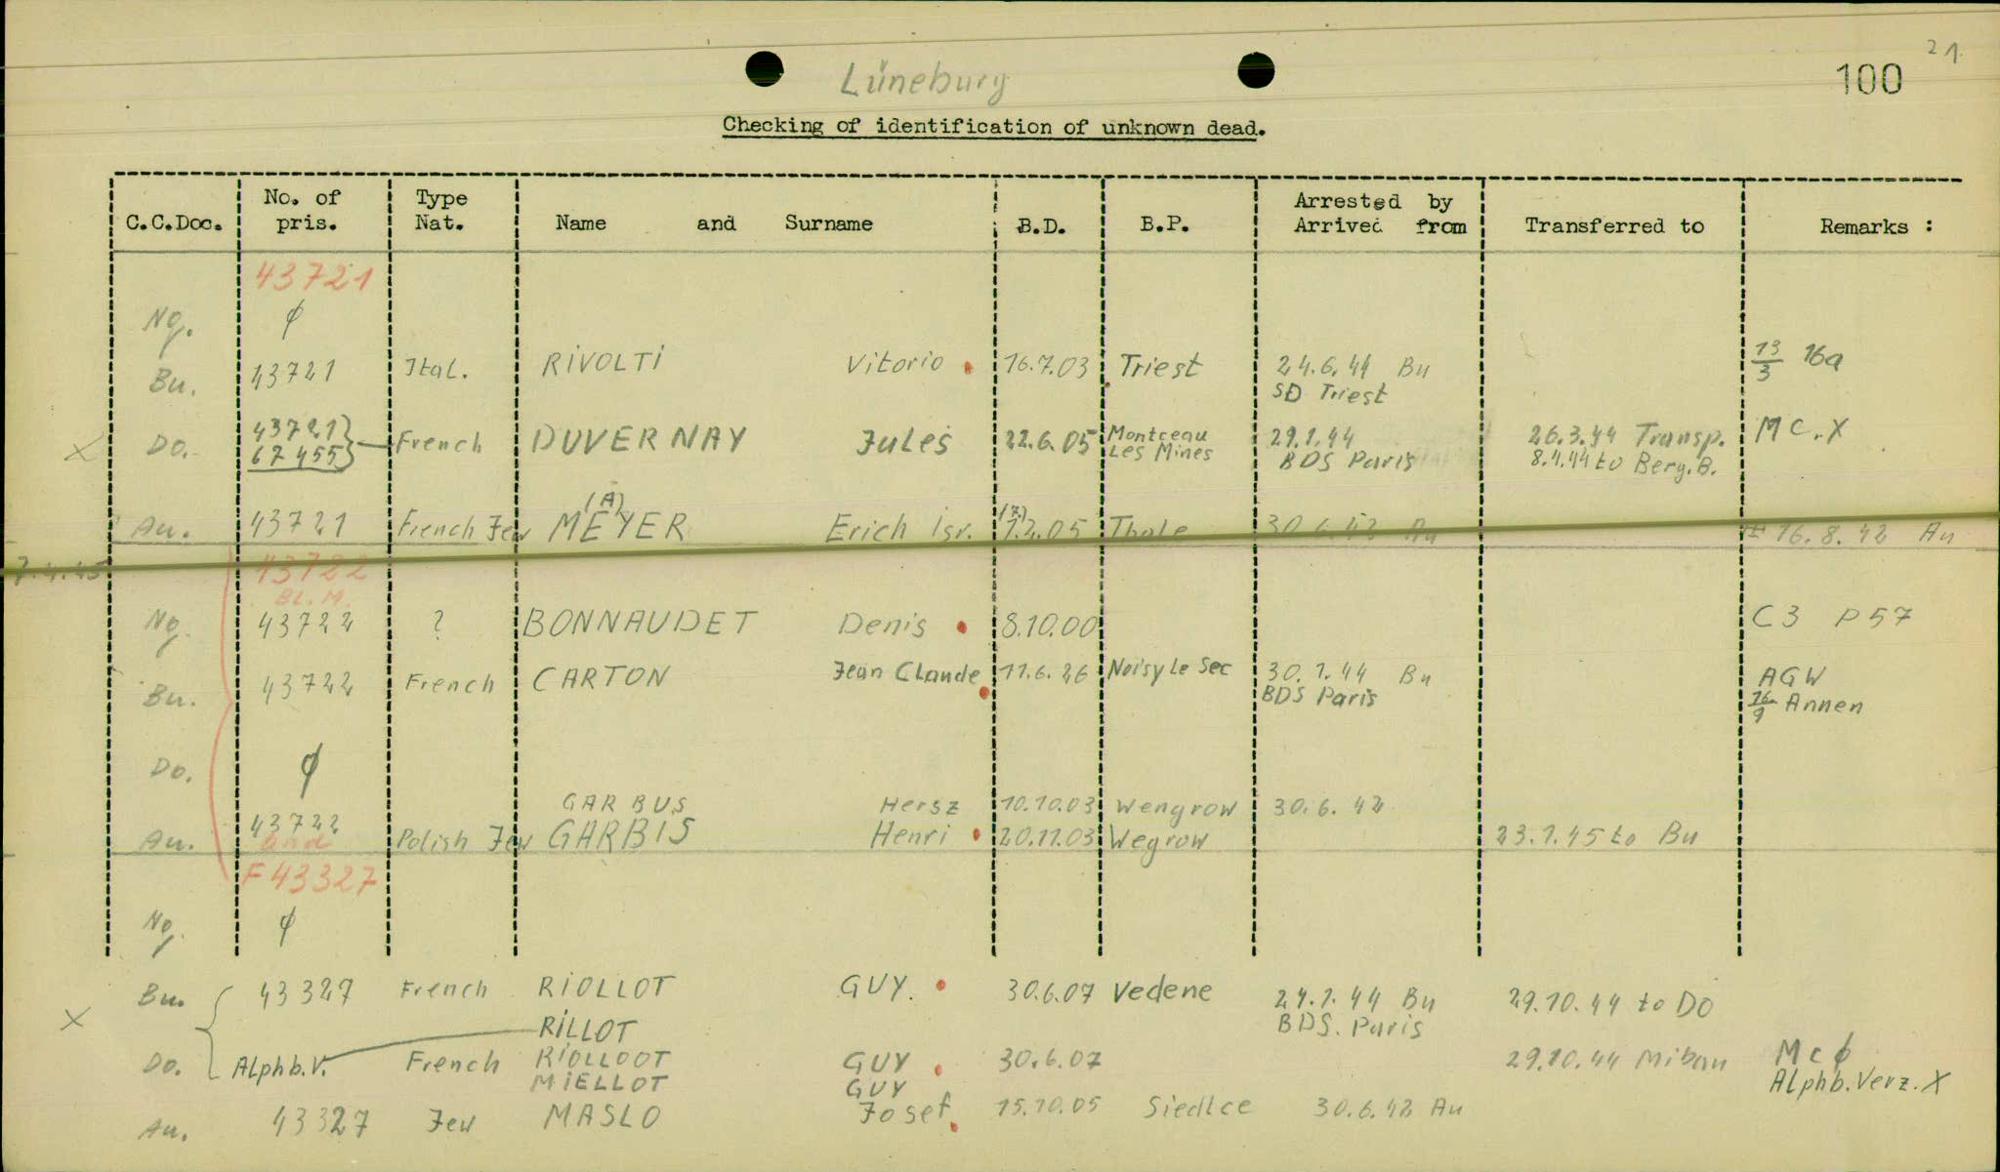 21
100
Lüneburg
Checking of identification of unknown dead.
C.C.Doc. No. of pris. Type Nat. Name and Surname B.D. B.P. Arrested by Arrived from Transferred to Remarks :
43721
Ng. ϕ
Bu. 43721 Ital. RIVOLTI Vitorio 16.7.03 Triest 24.6.44 Bu 13/3 16a
SD Triest
X Do. 43721 French DUVERNAY Jules 22.6.05 Montceau 29.1.44 26.3.44 Transp. MC.X
67455 Les Mines BDS Paris 8.4.44 to Berg.B.
(A) (7.)
Au. 43721 French Jew MEYER Erich Isr. 1.2.05 Thale 30.6.42 Au 16.8.42 Au
7.4.45 43722
BL.M.
Ng. 43722 ? BONNAUDET Denis 8.10.00 C3 P57
Bu. 43722 French CARTON Jean Claude 11.6.26 Noisy Le Sec 30.1.44 Bu AGW
BDS Paris 16/9 Annen
Do. ϕ
GARBUS Hersz 10.10.03 Wengrow 30.6.42
Au. 43722 Polish Jew GARBIS Henri 20.11.03 Wegrow 23.1.45 to Bu
and
F 43327
Ng. ϕ
Bu. 43327 French RIOLLOT GUY. 30.6.07 Vedene 29.1.44 Bu 29.10.44 to DO
X RILLOT BDS. Paris
Do. Alphb.V. French RIOLLOOT GUY 30.6.07 29.10.44 Miban Mc ϕ
MIELLOT GUY Alphb.Verz.X
Au. 43327 Jew MASLO Josef 15.10.05 Siedlce 30.6.42 Au